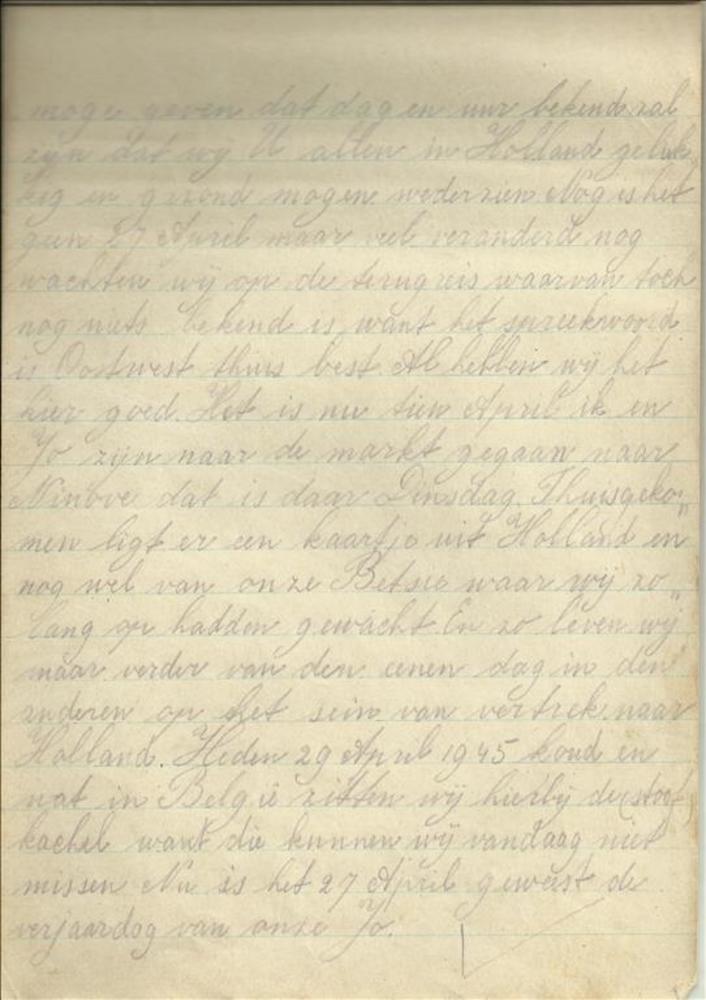 moge geven dat dag en uur bekend zal
zijn dat wij U allen in Holland geluk
kig en gezond mogen wederzien Nog is het
geen 27 April maar veel veranderd nog
wachten wij op de terugreis waarvan toch
nog niets bekend is want het spreekwoord
is Oostwest thuis best. Al hebben wij het
hier goed. Het is nu tien April ik en
Jo zijn naar de markt gegaan naar
Ninove dat is daar Dinsdag. Thuisgeko„
men ligt er een kaartje uit Holland en
nog wel van onze Betsie waar wij zo„
lang op hadden gewacht En zo leven wij
maar verder van den eenen dag in den
anderen op het sein van vertrek naar
Holland. Heden 29 April 1945 koud en
nat in België zitten wij hierbij de (stoof)
kachel want die kunnen wij vandaag niet
missen Nu is het 27 April geweest de
verjaardag van onze Jo.